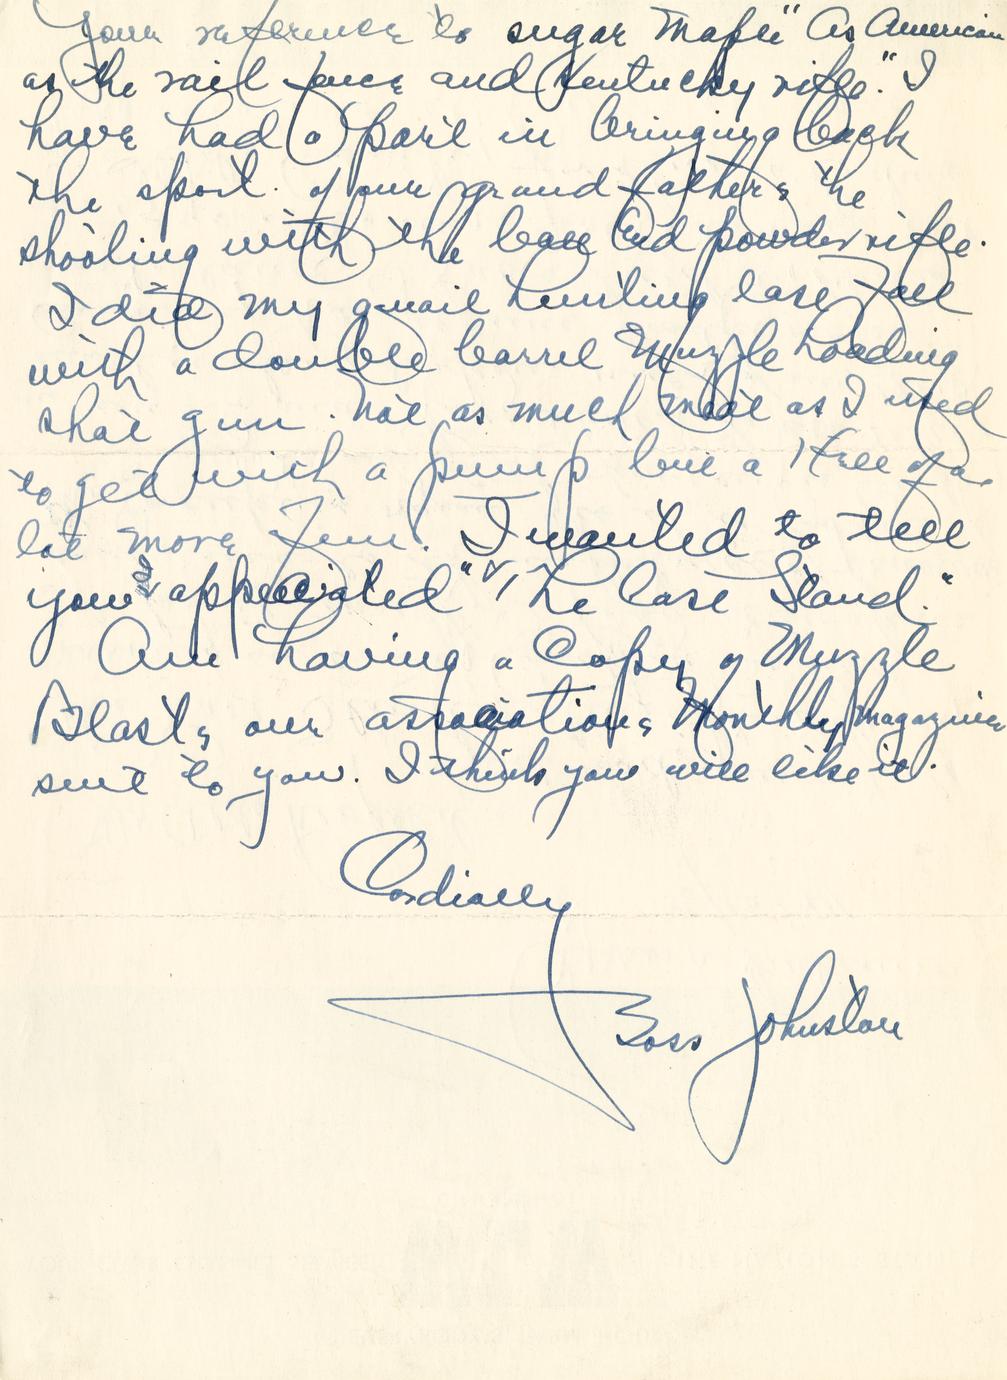 Your reference to sugar Maple "As American
as the rail fence and Kentucky rifle." I
have had a part in bringing back
the sport of our grand fathers the
shooting with the ball and powder rifle.
I did my quail hunting last Fall
with a double barrel Muzzle Loading
shot gun. Not as much meat as I used
to get with a pump but a Hell of a
lot more Fun. I wanted to tell
you I appreciated "The Last Stand."
Am having a Copy of Muzzle
Blasts, our associations Monthly magazine
sent to you. I think you will like it.
Cordially
Boss Johnston